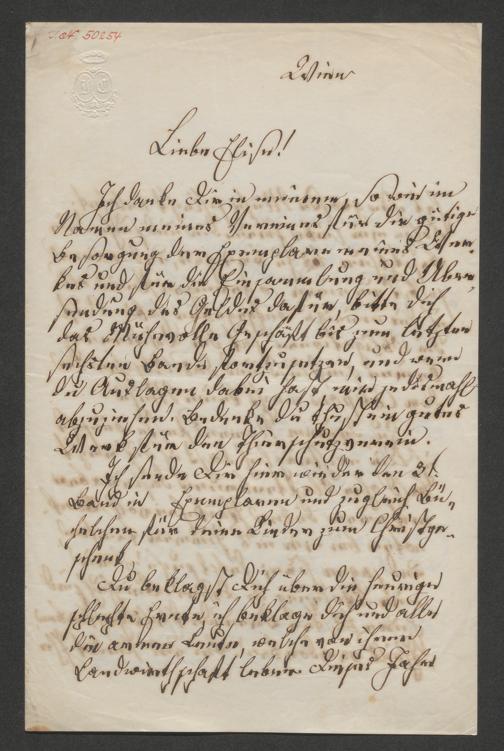 I.N. 50254
Wien
Liebe Elise!
Ich danke Dir in meinem, so wie im
Namen meines Vereines für die gütige
Besorgung der Exemplare meines Wer-
kes und für die Einsammlung und Über-
sendung des Geldes dafür, bitte Dich
das Mühevolle Geschäft bis zum letzten
sechsten Bande fortzusetzen, und wenn
du Auslagen dabei hast, mir jedesmahl
abzuziehen. Bedenke du thust ein gutes
Werk für den Thierschutzverein.
Ich sende Dir hier wieder den
Band in Exemplaren und zugleich Bü-
chelchen für deine Kinder zum Christge-
schenk
Du beklagst Dich über die heurige
schlechte Ernte, ich beklage Dich und alle
die armen Leute, welche von ihrer
Landwirthschaft leben. Dieses Jahr